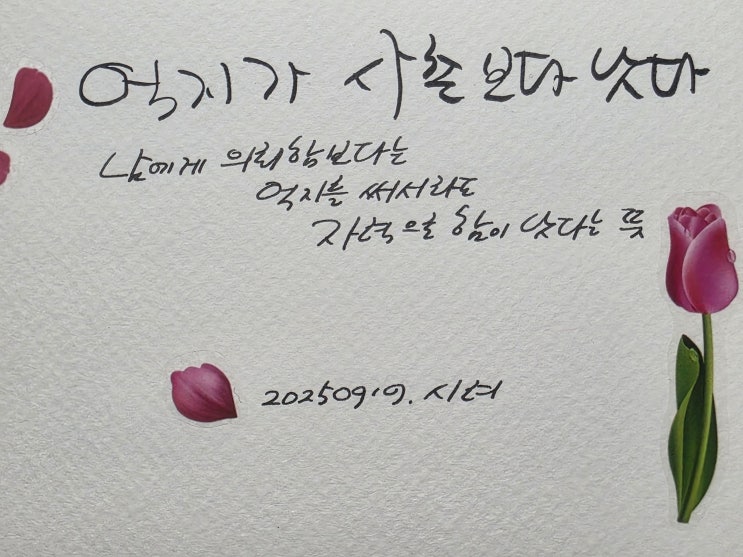 억지가 사촌보다 낫다
남에게 의뢰함보다는
억지를 써서라도
자력으로 함이 낫다는 뜻
20250919. 시려